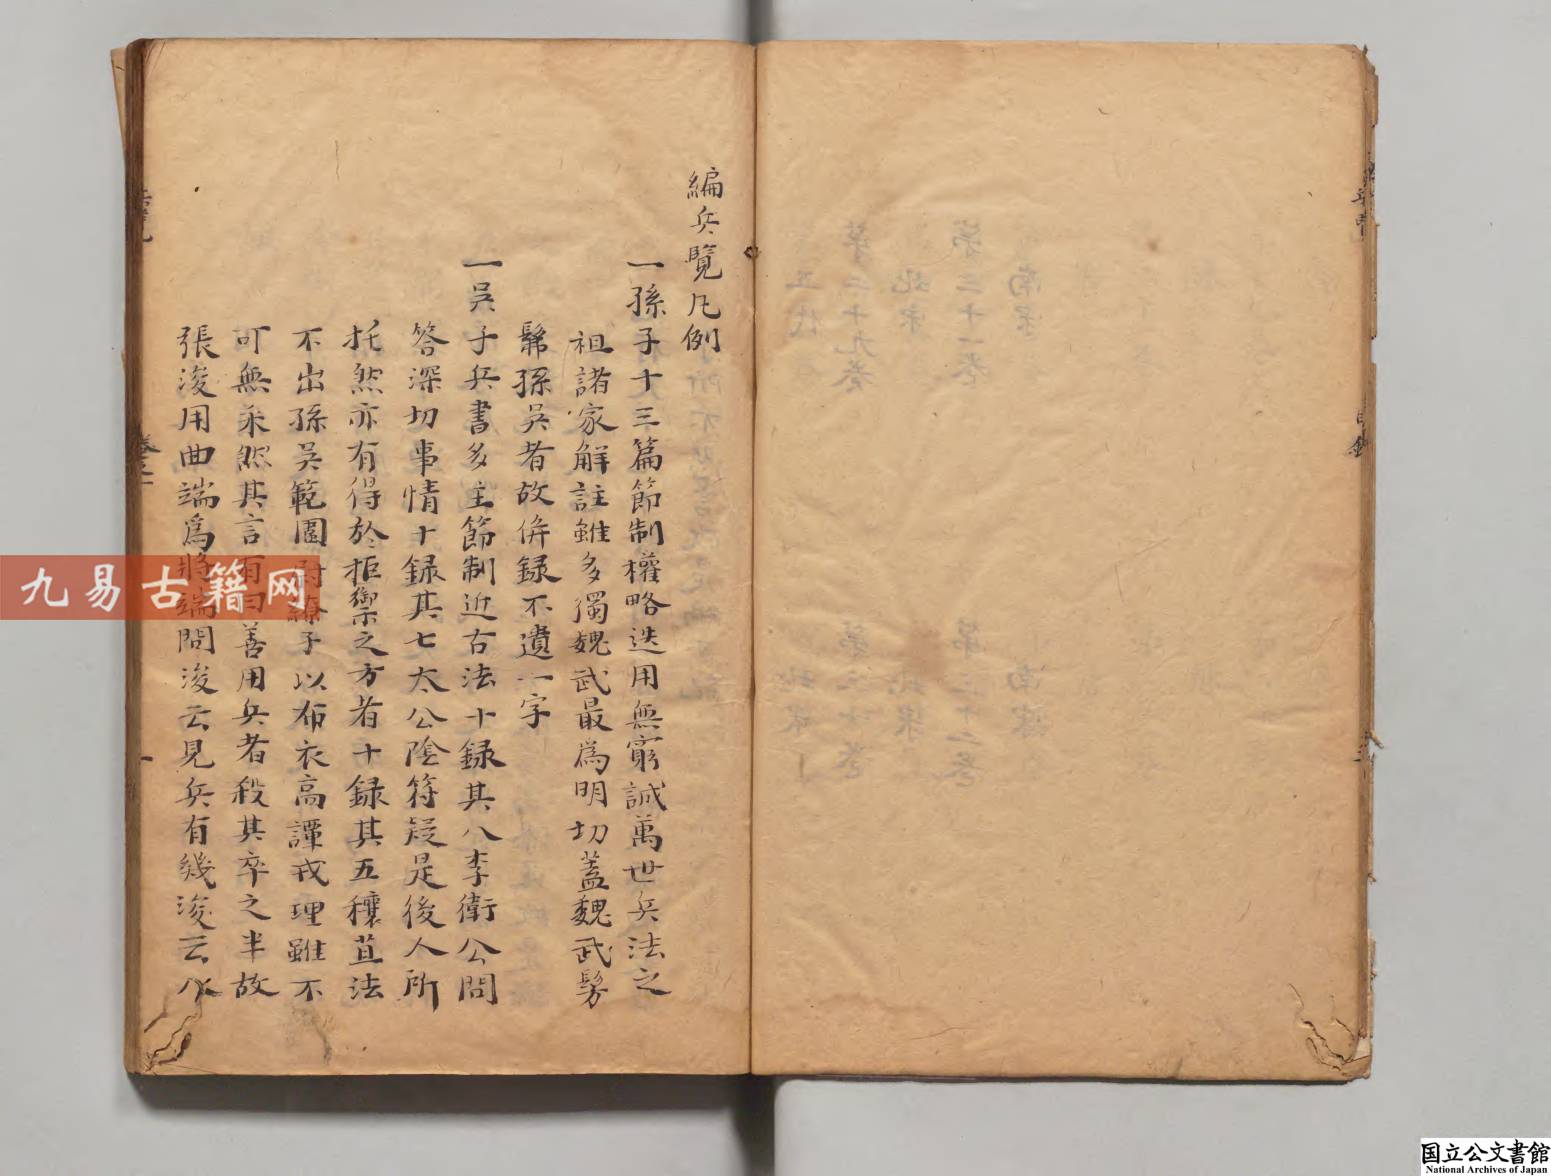 編兵覽凡例
一孫子十三篇節制權略迭用無窮誠萬世兵法之
祖諸家解註雖多獨魏武最爲明切蓋魏武髣
髴孫吳者故併録不遺一字
一吳子兵書多主節制近古法十録其八李衛公問
答深切事情十録其七太公陰符疑是後人所
托然亦有得於拒禦之方者十録其五穰苴法
不出孫吳範圍尉繚子以布衣高譚戎理雖不
可無采然其言有曰善用兵者殺其卒之半故
張浚用曲端爲將端問浚云見兵有幾浚云八
卷之一
一
九易古籍网
国立公文書館
National Archives of Japan